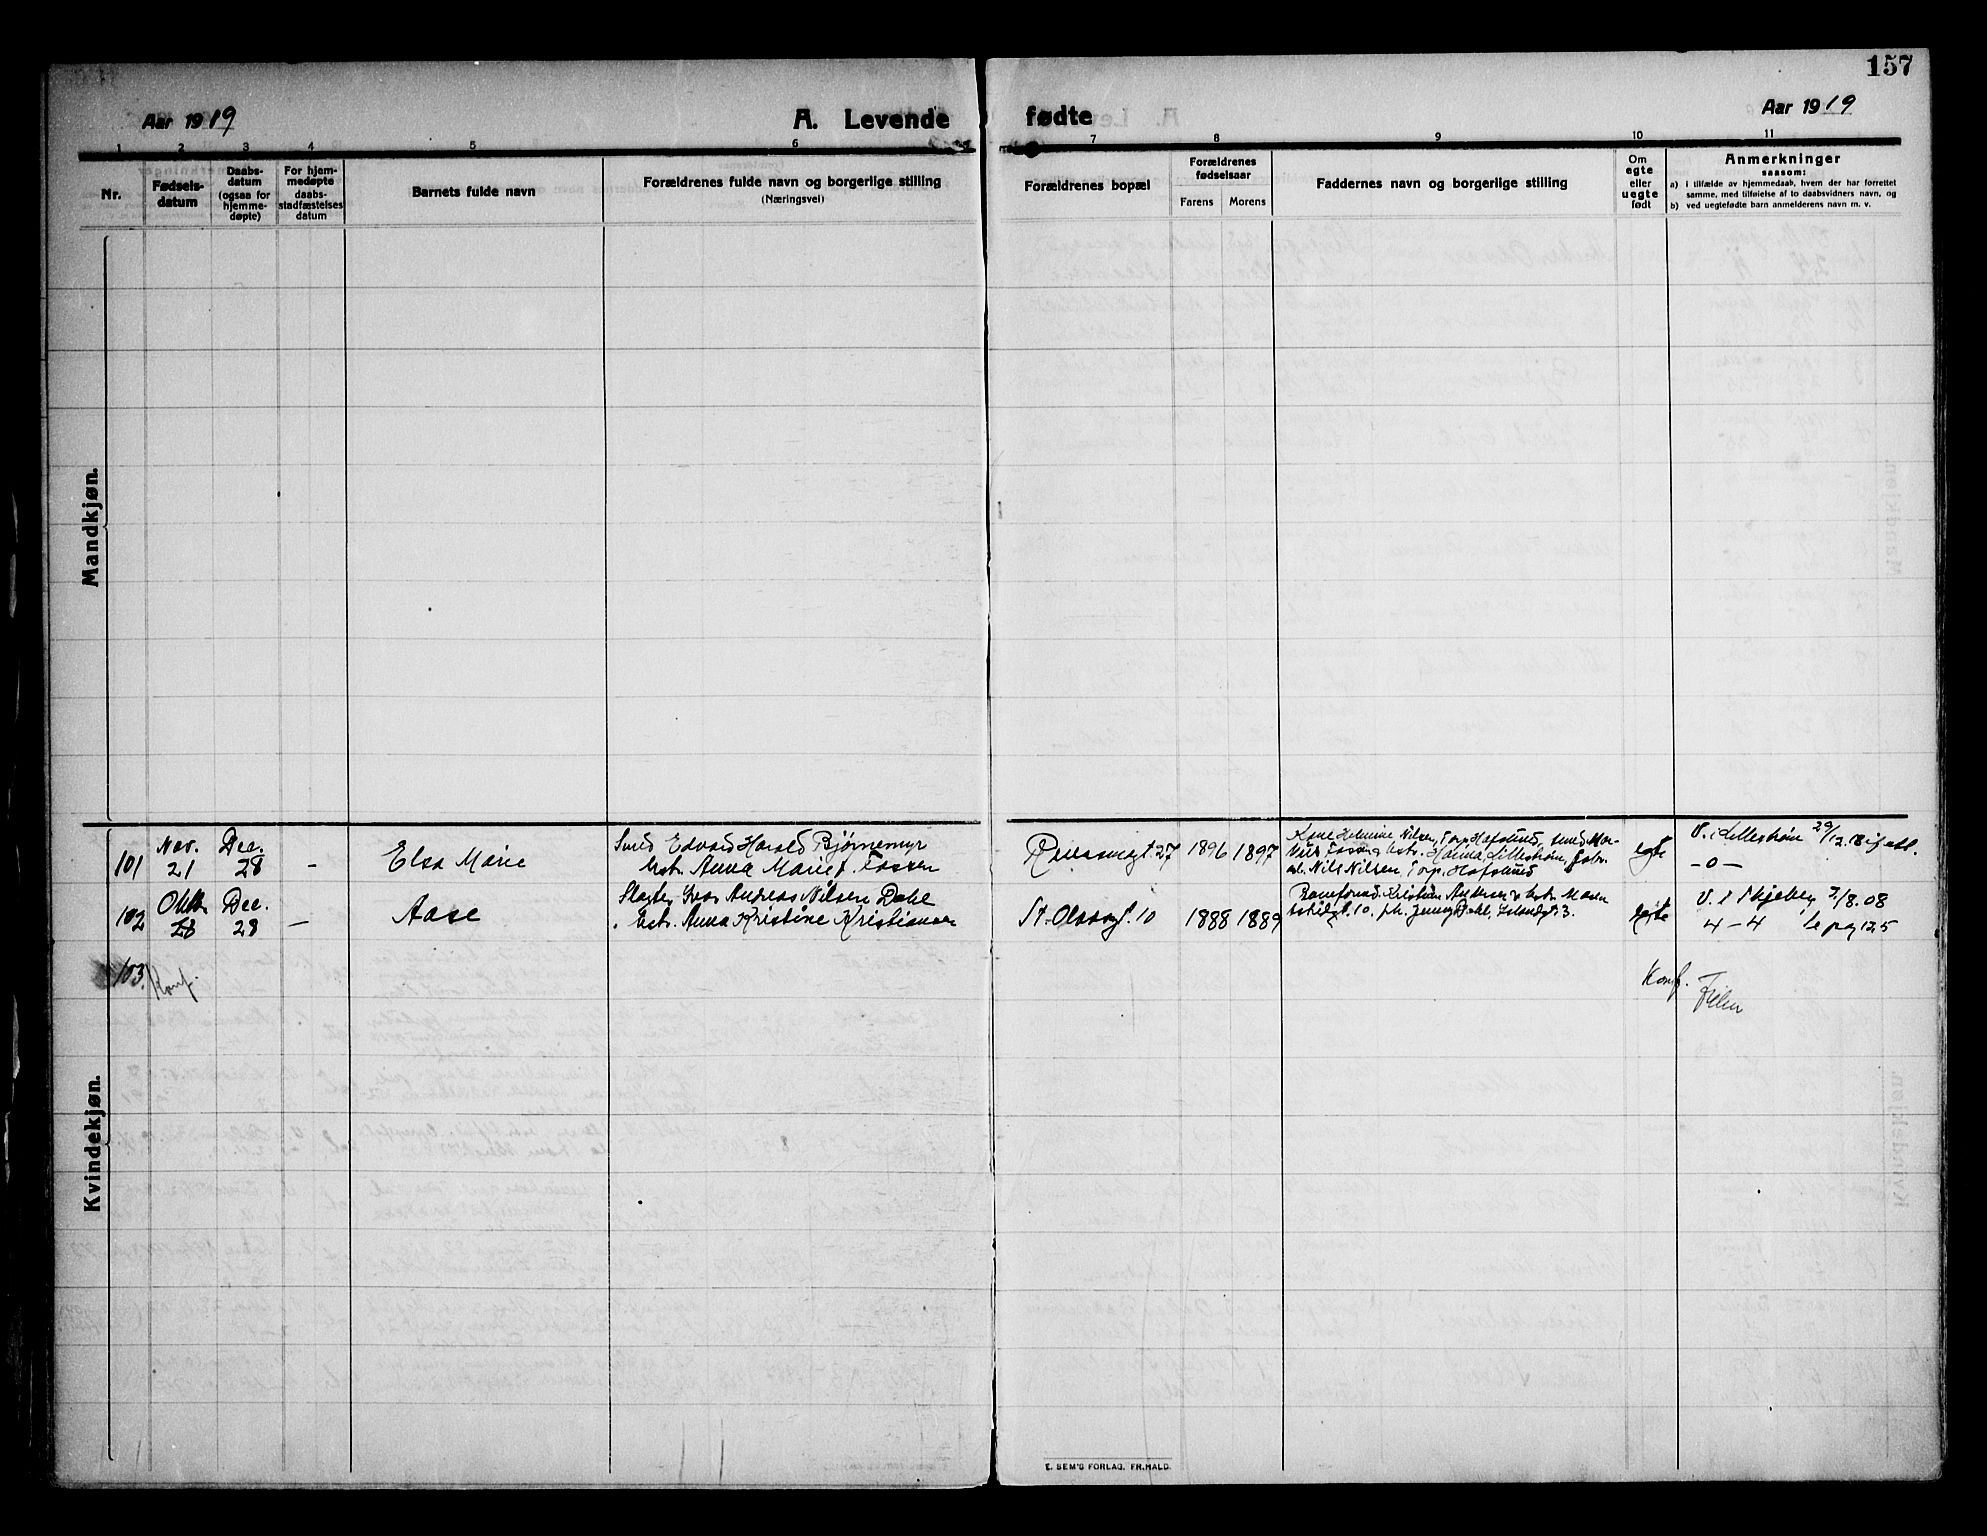 157
Aar 1919
A. Levende fødte
Aar 1919
1 2 3 4 5 6 7 8 9 10 11
Nr.
Fødsels-
datum
Daabs-
datum
(ogsaa for
hjemme-
døpte)
For hjem-
medøpte
daabs-
stadfæstelses
datum
Barnets fulde navn
Forældrenes fulde navn og borgerlige stilling
(Næringsvei)
Forældrenes bopæl
Forældrenes
fødselsaar
Farens Morens
Faddernes navn og borgerlige stilling
Om
egte
eller
uegte
født
Anmerkninger
saasom:
a) i tilfælde av hjemmedaab, hvem der har forrettet
samme, med tilføielse af to daabsvidners navn, og
b) ved uegtefødte barn anmelderens navn m. v.
Mandkjøn.
Kvindekjøn.
101
Nov.
21
Dec.
28
–
Elsa Marie
Smed Edvard Harald Bjørnemyr
Hstr. Anna Marie f. Fossen
27
1896 1897
Nilsen, Torp, Hafslund, smed
Hanna Lillestrøm,
Nils Nilsen, Torp, Hafslund
egte
V. i Lillestrøm 29/12 18
–0–
102
Oktb.
28
Dec.
28
–
Aase
Andreas Nilsen Dahl
Hstr. Anna Kristine Kristiansen
St. Olavsgt. 10
1888 1889
Kristian Andersen
10, Jenny Dahl, 3.
egte
V. i Skjeberg 2/8.08
4–4 Se pag 125
103.
Konf.
Konf.
E. SEM'S FORLAG. FR.HALD.